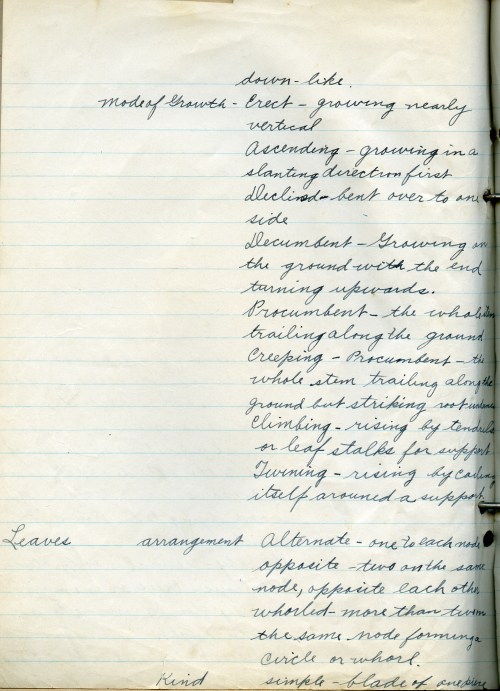 down-like.
Mode of Growth - Erect - growing nearly
vertical
Ascending - growing in a
slanting direction first
Declined - bent over to one
side
Decumbent - Growing on
the ground with the end
turning upwards.
Procumbent - the whole
trailing along the ground
Creeping - Procumbent - the
whole stem trailing along the
ground but striking root
Climbing - rising by tendrils
or leaf stalks for support
Twining - rising by coiling
itself arouned a support
Leaves arrangement Alternate - one to each node
opposite - two on the same
node, opposite each other
whorled - more than two on
the same node forming a
circle or whorl.
Kind simple - blade of one